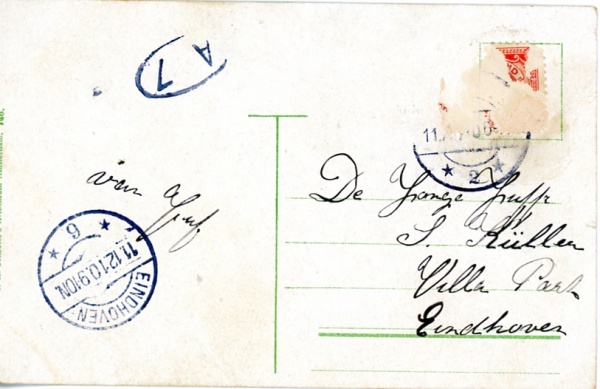 A 7
van Juf
De Jonge Juffr
S. Kühlen
Villa Park
Eindhoven
11.12
2
EINDHOVEN
11.12.10.9-10N.
6